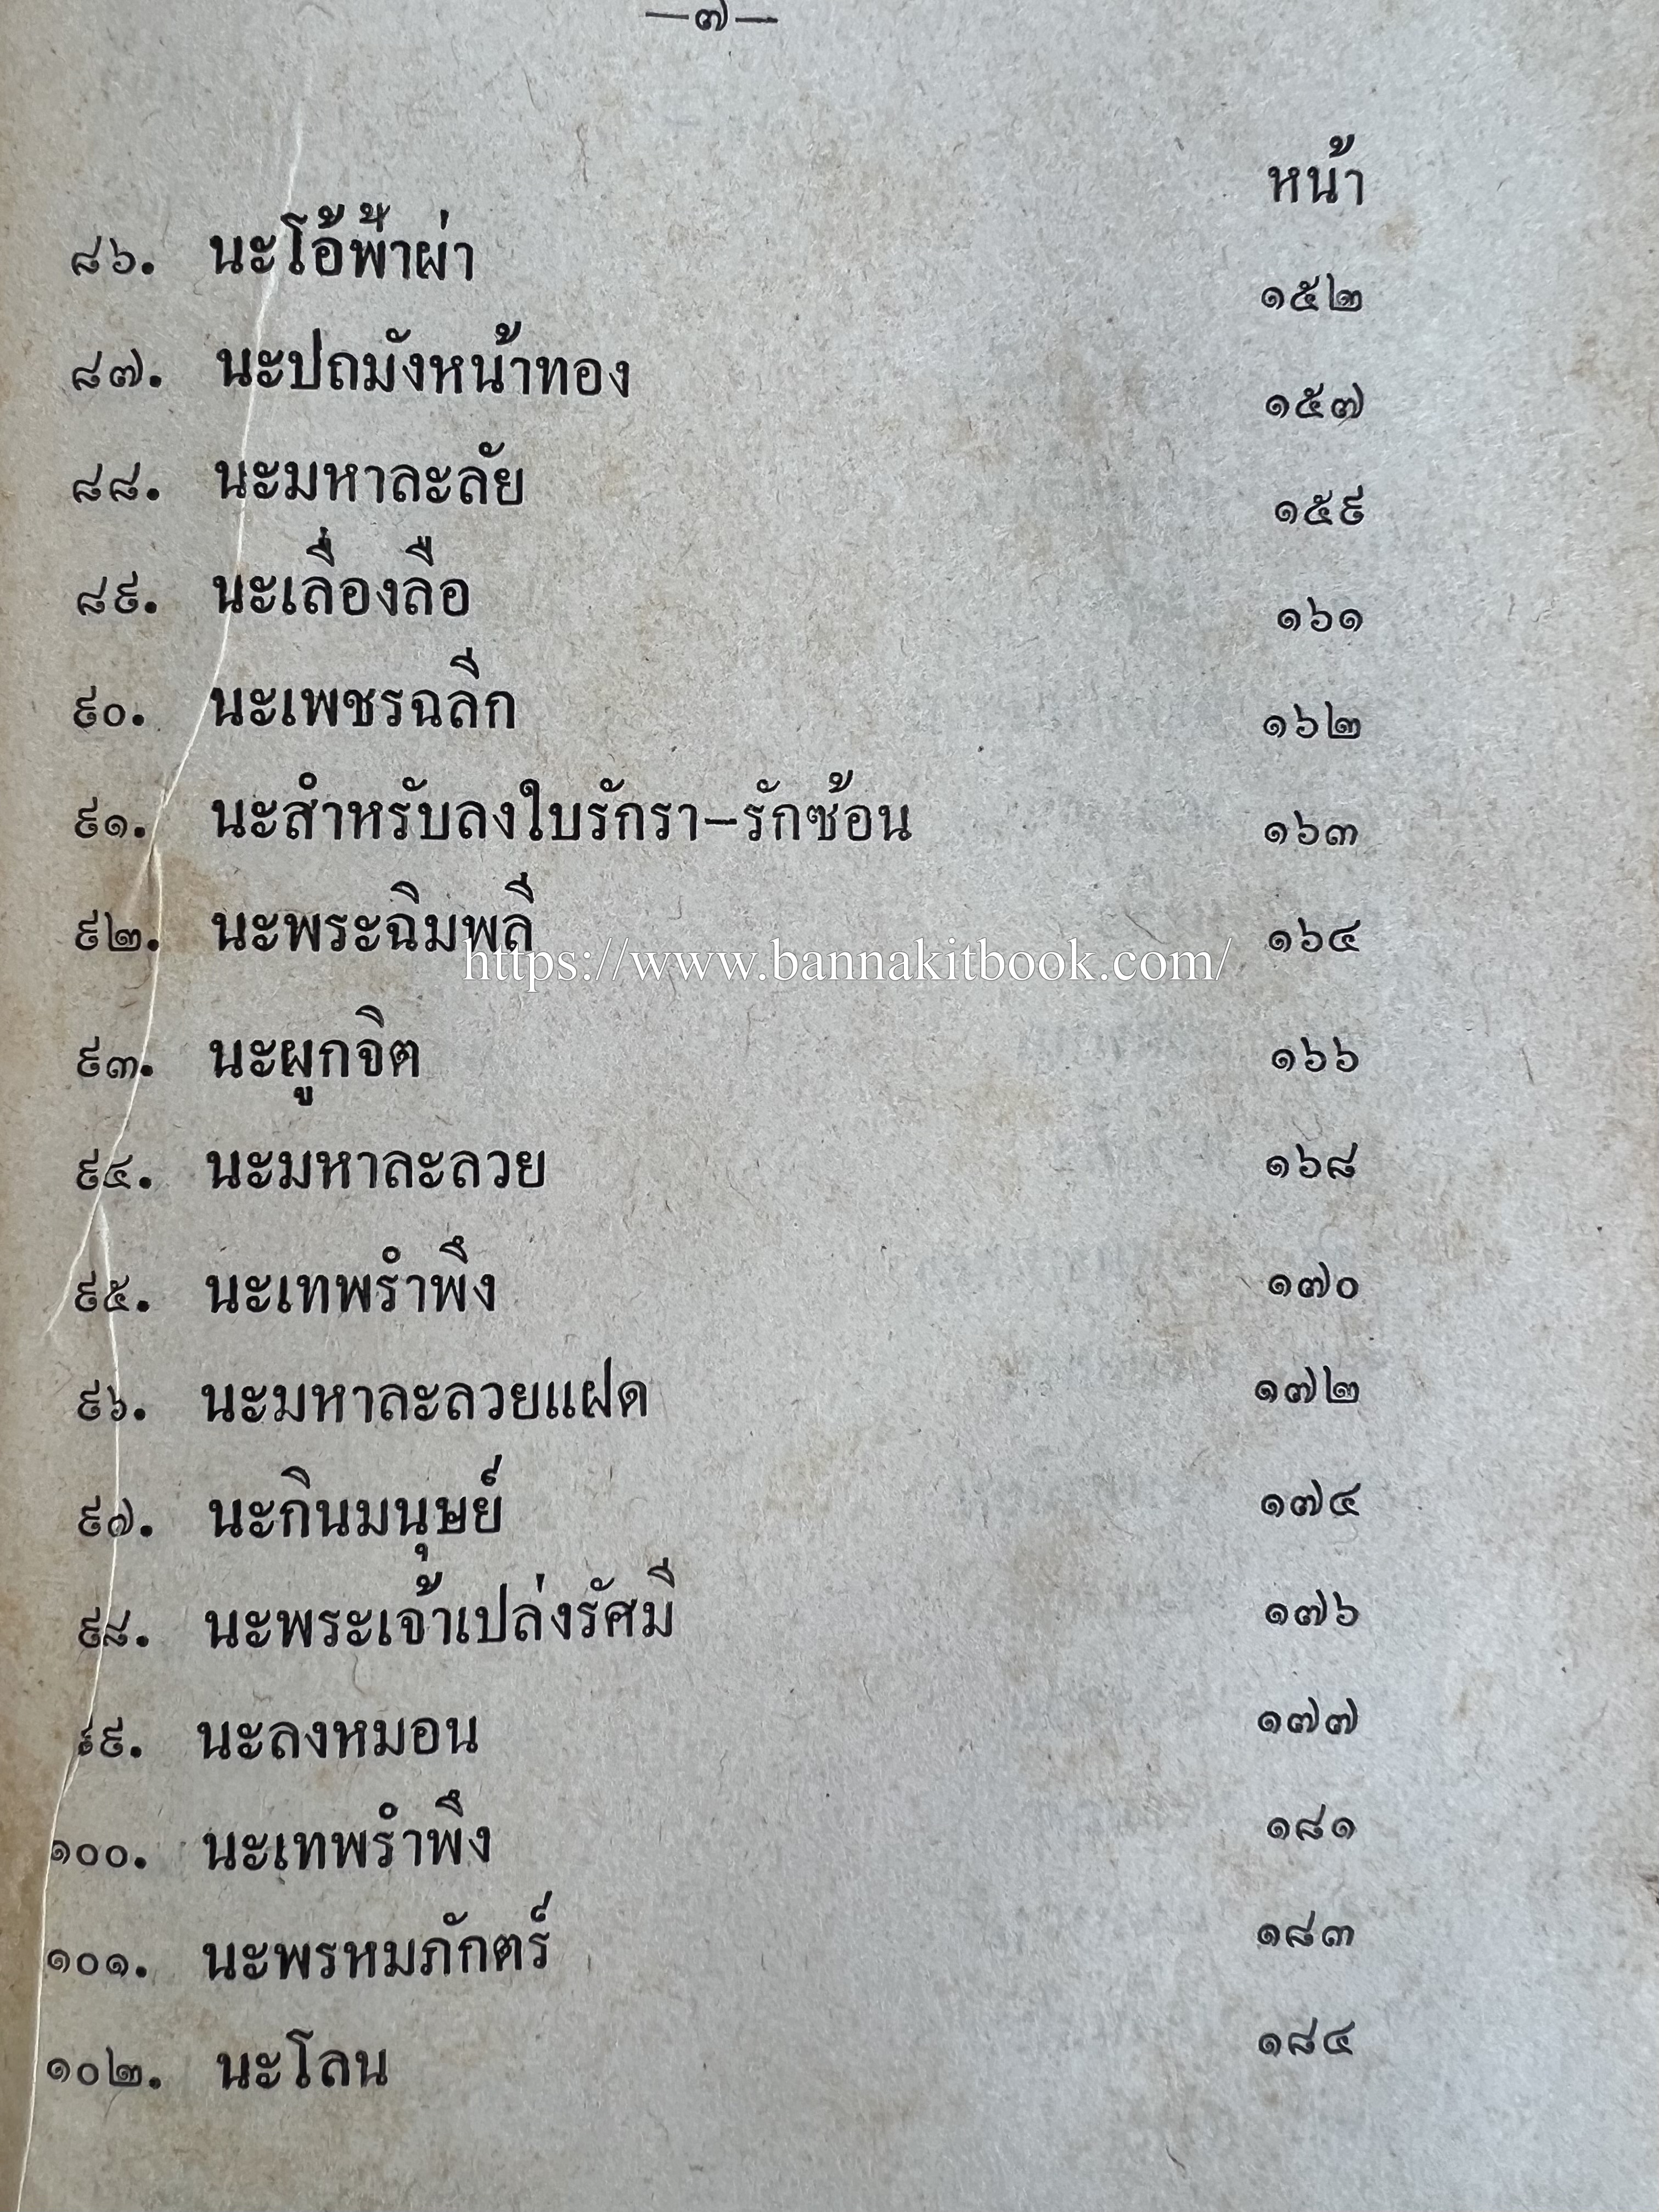 —๗—
หน้า
๘๖. นะโอ้ฟ้าผ่า ๑๕๒
๘๗. นะปถมังหน้าทอง ๑๕๗
๘๘. นะมหาละลัย ๑๕๙
๘๙. นะเลื่องลือ ๑๖๑
๙๐. นะเพชรฉลีก ๑๖๒
๙๑. นะสำหรับลงใบรักรา–รักซ้อน ๑๖๓
๙๒. นะพระฉิมพลี ๑๖๔
https://www.bannakitbook.com/
๙๓. นะผูกจิต ๑๖๖
๙๔. นะมหาละลวย ๑๖๘
๙๕. นะเทพรำพึง ๑๗๐
๙๖. นะมหาละลวยแฝด ๑๗๒
๙๗. นะกินมนุษย์ ๑๗๔
๙๘. นะพระเจ้าเปล่งรัศมี ๑๗๖
๙๙. นะลงหมอน ๑๗๗
๑๐๐. นะเทพรำพึง ๑๘๑
๑๐๑. นะพรหมภักตร์ ๑๘๓
๑๐๒. นะโลน ๑๘๔